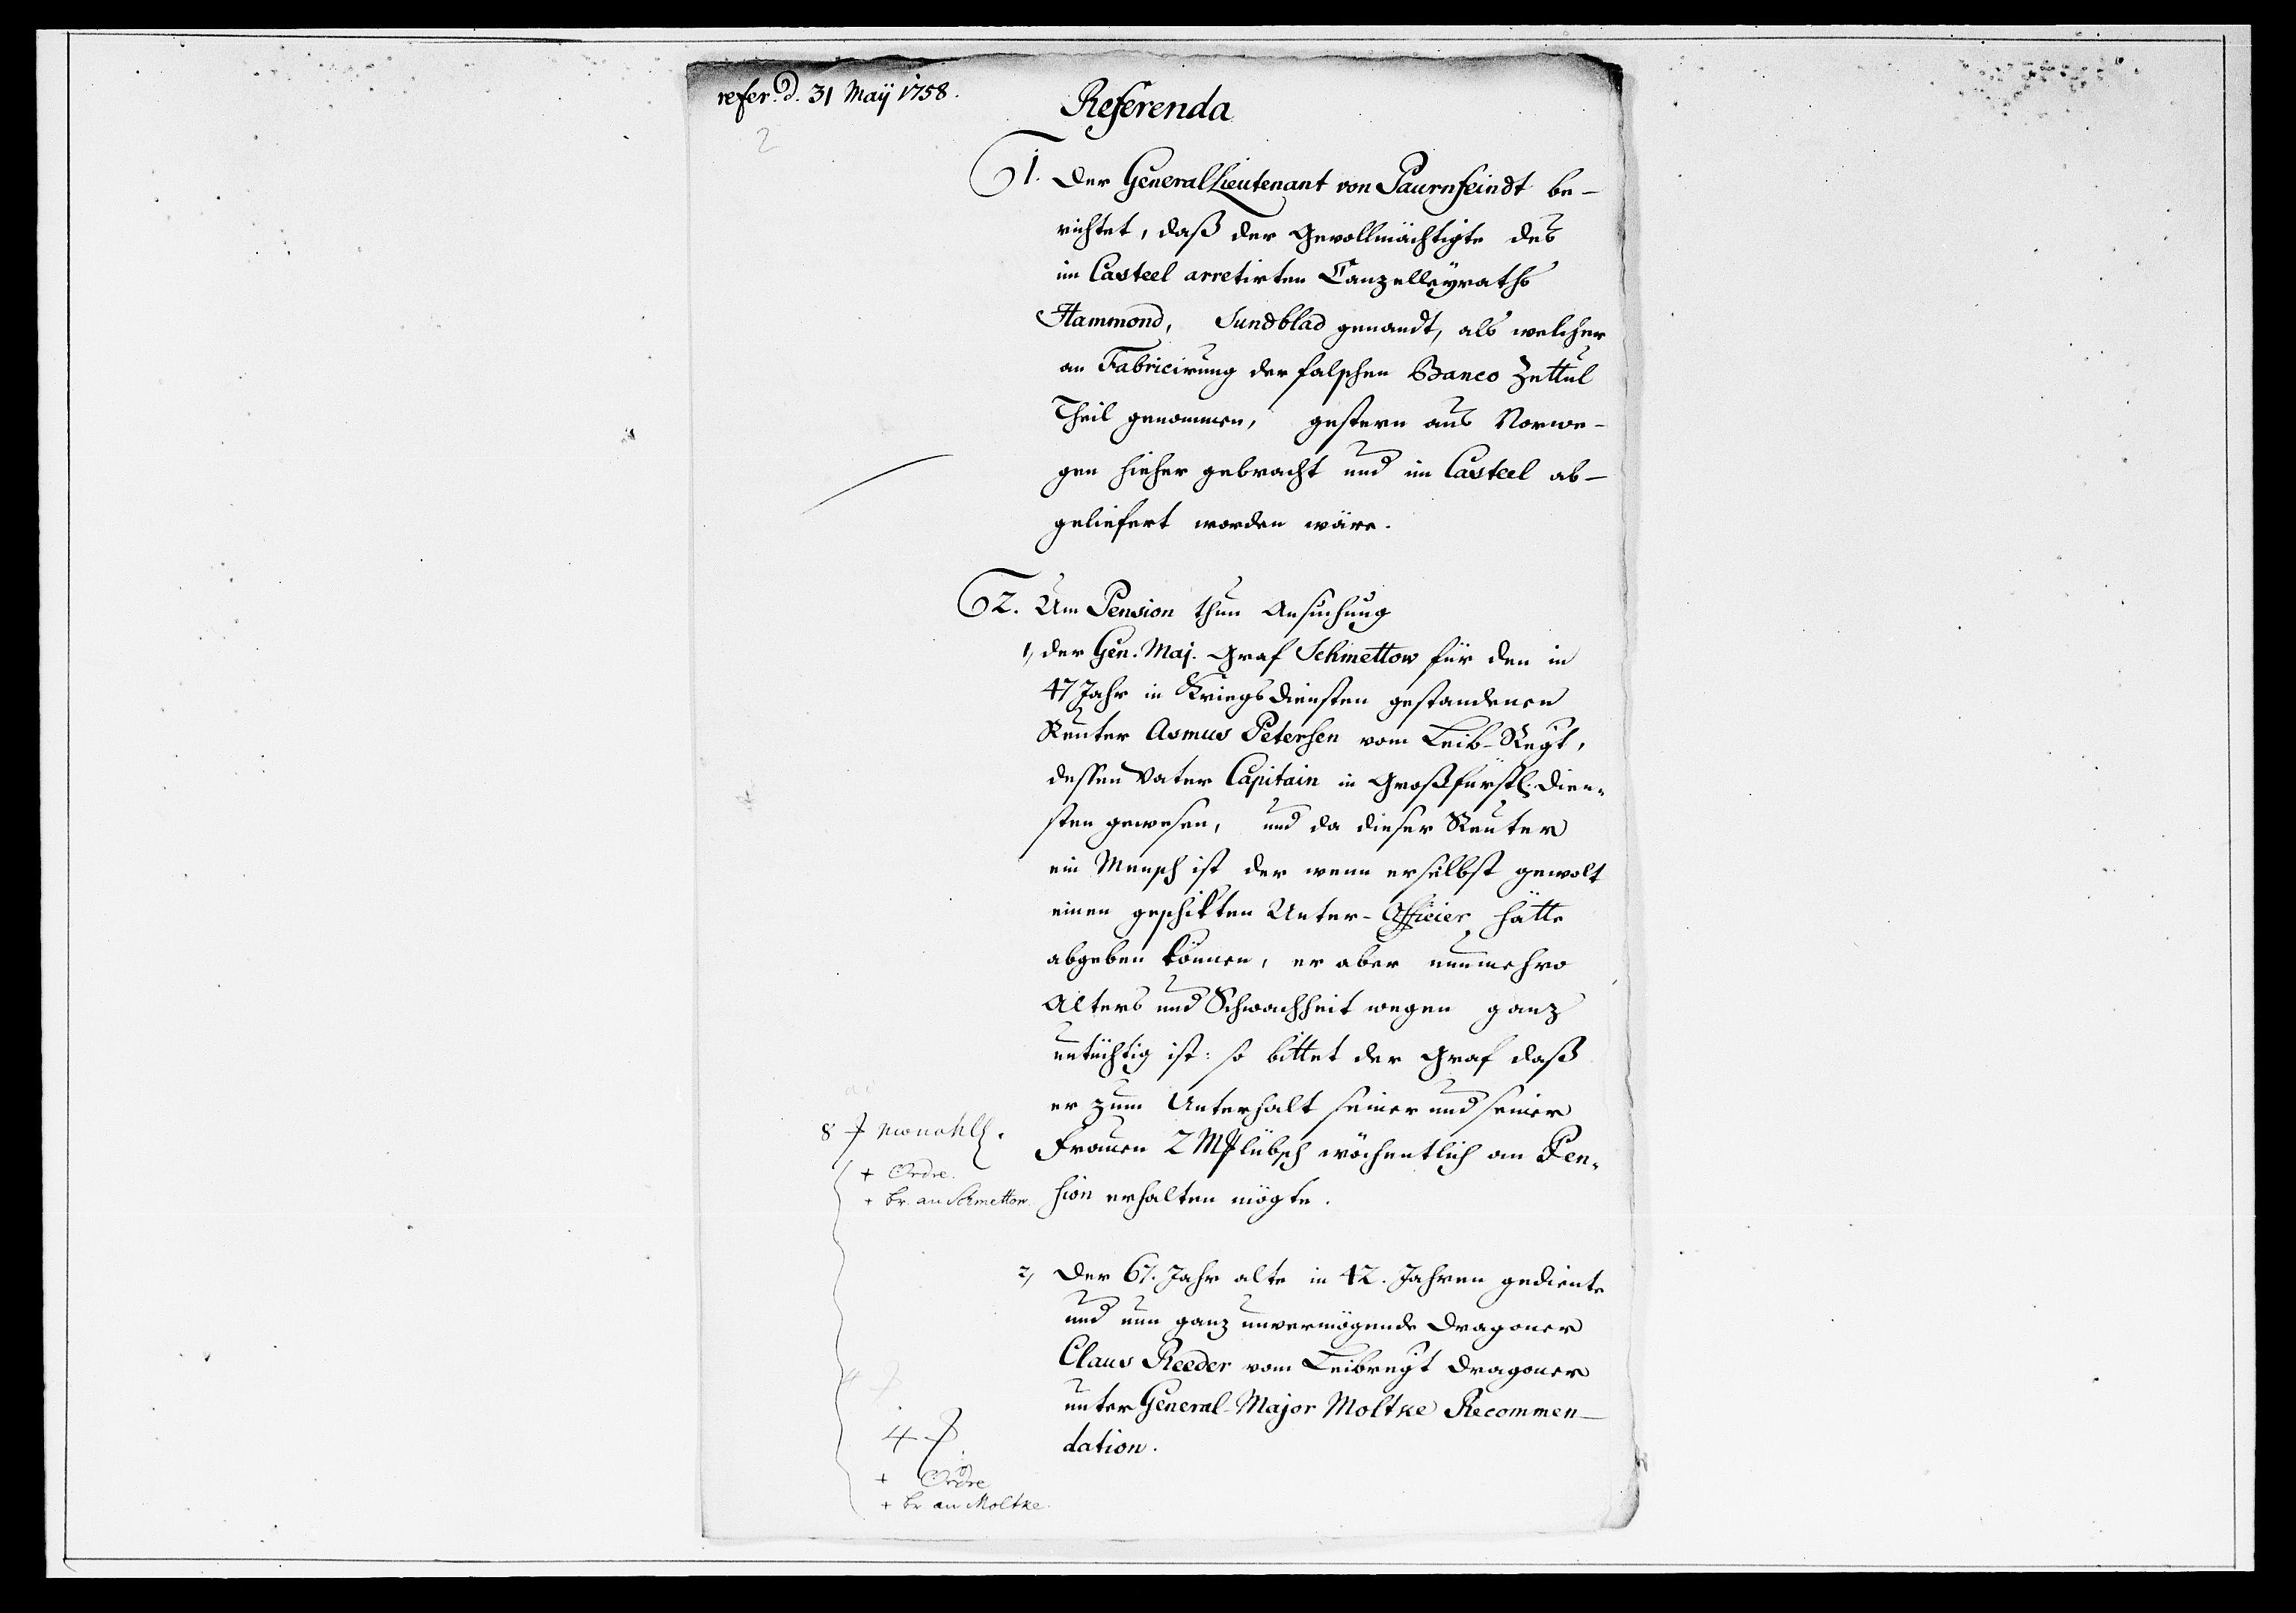 refer. d. 31 Maÿ 1758.
2
Referenda
1. Der GeneralLieutenant von Paurnfeindt be-
richtet, daß der Gevollmächtigte des
im Casteel arretirten Canzelleÿraths
Hammond, Sundblad genandt, als welcher
an Fabricirung der falschen Banco Zettul
Theil genommen, gestern aus Norwe-
gen hieher gebracht und im Casteel ab-
geliefert worden wäre.
2. Um Pension thun Ansuchung
1, der Gen. Maj. Graf Schmettow für den in
47 Jahr in Kriegsdiensten gestandenen
Reuter Asmus Petersen vom Leib-Regt,
dessen Vater Capitain in Großfürstl. Dien-
sten gewesen, und da dieser Reuter
ein Mensch ist der wenn er selbst gewolt
einen geschikten Unter-Officier hätte
abgeben können, er aber nunmehro
Alters und Schwachheit wegen ganz
untüchtig ist: so bittet der Graf daß
er zum Unterhalt seiner und seiner
Frauen 2 M# lübsch wöchentlich an Pen-
sion erhalten mögte.
8 # monathl.
+ Ordre.
+ br. an Schmettow.
2, Der 67. Jahr alte in 42. Jahren gediente
und nun ganz unvermögende Dragoner
Claus Reeder vom Leibregt Dragoner
unter General-Major Moltke Recommen-
dation.
4 #
+ Ordre
+ br an Moltke.